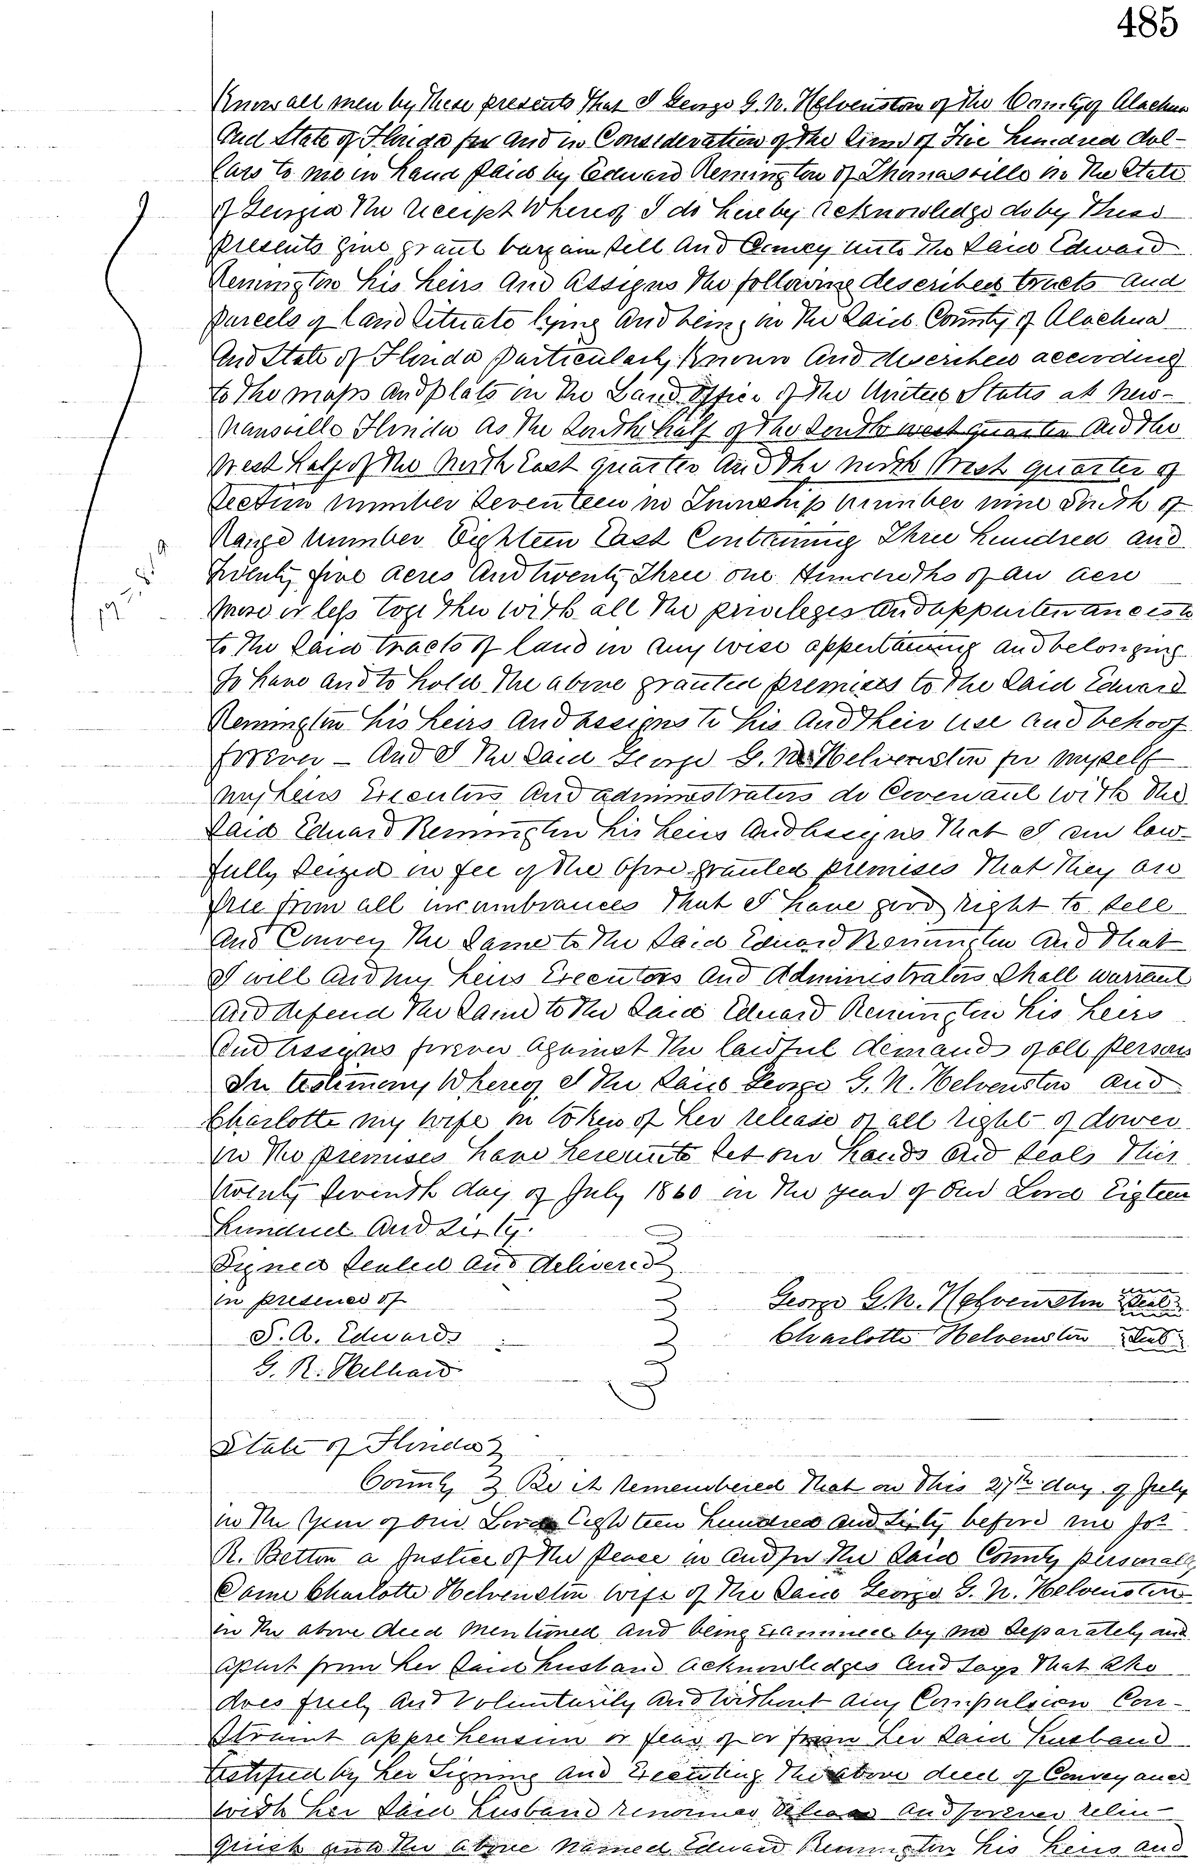 485
Know all men by These presents That I George G. N. Helvenston of The County of Alachua
And State of Florida for And in Consideration of The Sum of Five hundred dol-
lars to me in hand paid by Edward Remington of Thomasville in The State
of Georgia The receipt Whereof I do hereby acknowledge do by These
presents give grant bargain sell And Convey unto The Said Edward
Remington his heirs And Assigns The following described tracts and
parcels of land Situate lying And being in The Said County of Alachua
And State of Florida particularly Known And described according
to The maps And plats in The Land Office of The United States at New-
nansville Florida As The South half of The South west quarter And The
West half of The North East quarter And The North West quarter of
Section number Seventeen in Township number nine South of
Range number Eighteen East Containing Three hundred and
twenty five acres And twenty Three one Hundredths of an acre
more or less together with all The privileges And appurtenances
to The Said tracts of land in any wise appertaining and belonging
To have and to hold The above granted premises to The Said Edward
Remington his heirs And assigns to his And Their use and behoof
forever - And I The Said George G. N. Helvenston for myself
my heirs Executors And administrators do Covenant with The
Said Edward Remington his heirs And Assigns That I am law-
fully Seized in fee of The afore granted premises That They are
free from all incumbrances That I have good right to sell
And Convey The Same to The Said Edward Remington And That
I will And my heirs Executors And Administrators Shall warrant
And defend The Same to The Said Edward Remington his heirs
And Assigns forever against The lawful demands of all persons
In testimony Whereof I The Said George G. N. Helvenston and
Charlotte my wife in token of her release of all right of dower
in The premises have hereunto Set our hands And Seals This
twenty Seventh day of July 1860 in The year of Our Lord Eigteen
hundred And Sixty.
Signed Sealed And delivered
in presence of
George G. N. Helvenston Seal
S. A. Edwards
Charlotte Helvenston Seal
G. R.
State of Florida
County Be it remembered That on This 27th day of July
in The Year of Our Lord Eighteen hundred And Sixty before me Jos
R. Betton a Justice of The Peace in And for The Said County personally
Came Charlotte Helvenston wife of The Said George G. N. Helvenston
in The above deed Mentioned And being Examined by me Separately and
apart from her Said husband acknowledges And Says That She
does freely And Voluntarily And Without any Compulsion Con-
straint apprehension or fear of or from her Said husband
testified by her Signing And Executing The above deed of Conveyance
with her Said husband renounces release And forever relin-
quish unto The above Named Edward Remington his heirs and